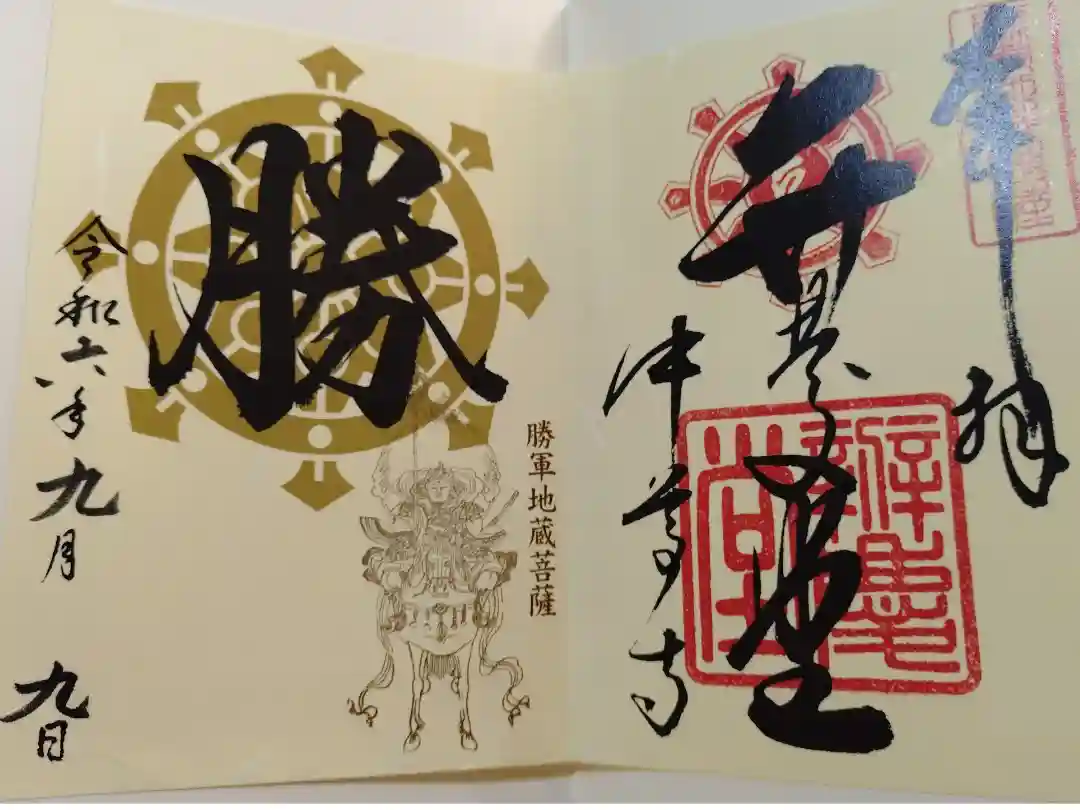 奉拝
弁慶堂
中尊寺
勝軍地蔵菩薩
勝
令和六年九月九日